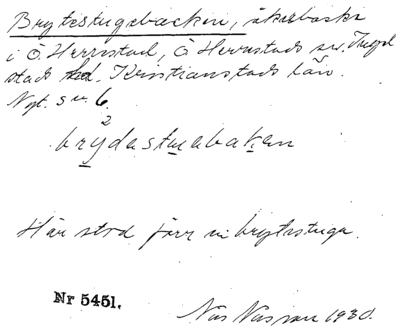 Brytestugebacken, åkerbacke
i Ö. Herrestad, Ö Herrestads sn. Ingel
stads hd. Kristianstads län.
Ngt. s m. 6.
2
brydastuabaken
Här stod förr en brytestuga.
Nr 5451.
Nils Nilsson 1930.